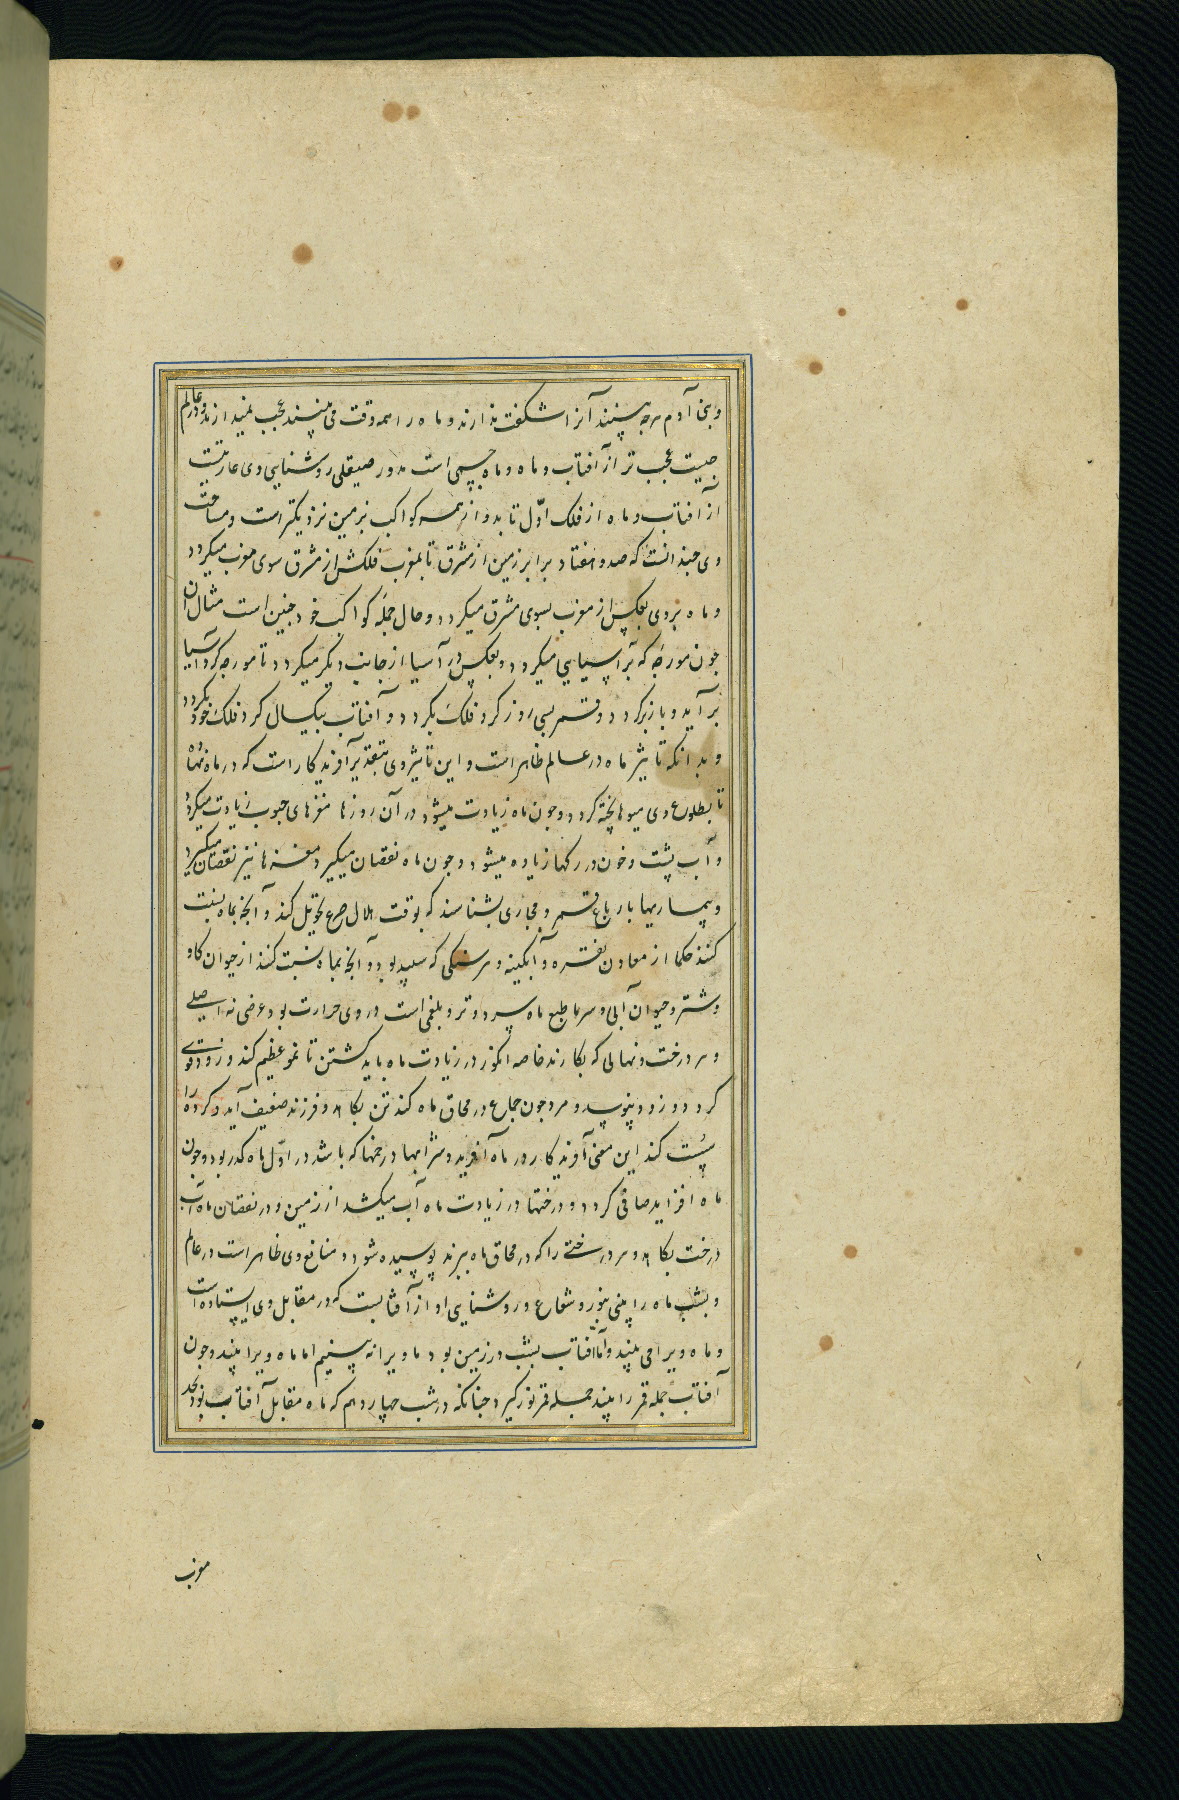 و بنی آدم هرچه بینند آنرا شکفت ندارند و ماه را همه وقت می بینند عجب نمیدارند و در عالم
چیست عجب تر از آفتاب و ماه و ماه جسمی است مدور صیقلی روشنایی وی عاریتیست
از آفتاب و ماه از فلک اوّل تابد و از همه کواکب بزمین نزدیکتر است و مساحت
وی چندانست که صد و هفتاد برابر زمین از مشرق تا بمغرب فلکش از مشرق سوی مغرب میکردد
و ماه بروی بعکس از مغرب بسوی مشرق میکردد و حال جمله کواکب خود چنین است مثال آن
چون مورچه که بر آسیایی میکردد و بعکس در آسیا از جانب دیکر میکردد تا مورچه کرد آسیا
برآید و باز کردد و قمر بسی روز کرد فلک بکردد و آفتاب بیکسال کرد فلک خود بکردد
و بدانکه تاثیر ماه در عالم ظاهر است و این تاثیر وی بتقدیر آفریدکار است که در ماه
تا بطلوع وی میوها پخته کردد و چون ماه زیادت میشود در آن روزها مغزهای حبوب زیادت میکردد
و آب پشت و خون در رکها زیاده میشود و چون ماه نقصان میکیرد مغزها نیز نقصان میکیرد
و بیماریها بارباع قمر و مجاری بشناسند که بوقت هلال صرع تحویل کند و آنچه بماه نسبت
کنند حکما از معادن نقره و آبکینه و هر سنکی که سپید بود و آنچه بماه نسبت کنند از حیوان کاو
و شتر و حیوان آبی و سرما طبع ماه سرد و تر و بلغمی است در وی حرارت بود عرضی نه اصلی
و هر درخت و نهالی که بکارند خاصه انکور در زیادت ماه باید کشتن تا نمو عظیم کند و زود قوی
کردد و زود بپوسد و مرد چون جماع در محاق ماه کند تن بکاهد و فرزند ضعیف آید و کرده را
سُست کند این معنی آفریدکار در ماه آفرید و شرابها در خمها که باشد در اوّل ماه کدر بود و چون
ماه افزاید صافی کردد و درختها در زیادت ماه آب میکشد از زمین و در نقصان ماه آب
درخت بکاهد و هر درختی را که در محاق ماه ببرند پوسیده شود و منافع وی ظاهر است در عالم
و بشب ماه را بینی بنور و شعاع و روشنایی او از آفتابست که در مقابل وی ایستاده است
و ماه ویرا می بیند و اما آفتاب بشب در زمین بود ما ویرا نه بینیم اما ماه ویرا بیند و چون
آفتاب جمله قمر را بیند جمله قمر نور کیرد چنانکه در شب چهاردهم که ماه مقابل آفتاب بود
مغرب